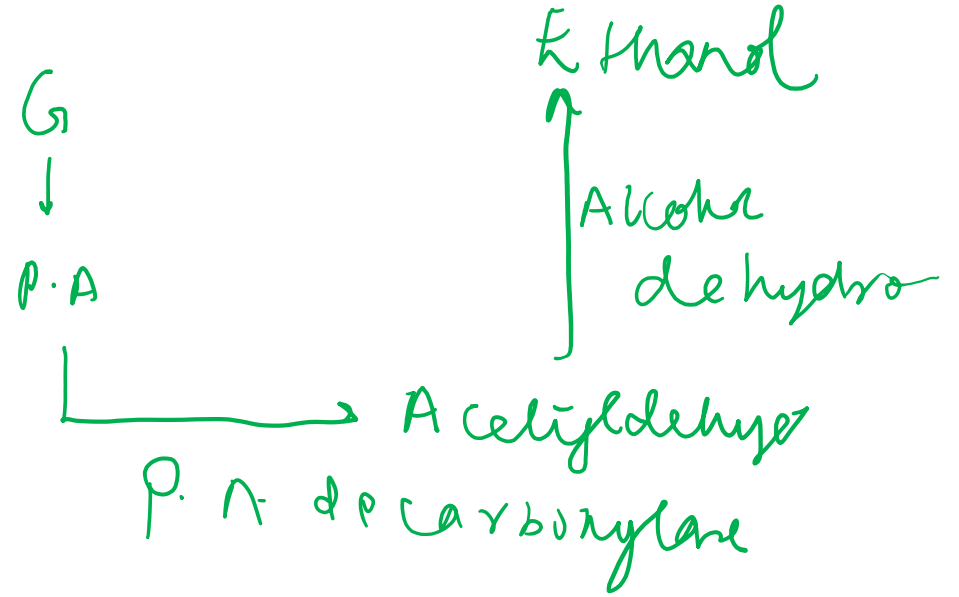 Ethanol
G
Alcohol
dehydro
P.A
Acetyldehyde
P.A decarboxylase